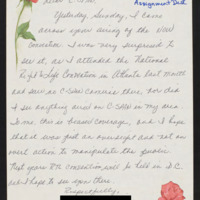 Dear C-SPAN
Assignment Desk
Yesterday, Sunday, I came
across upon airing of the NOW
Convention. I was very surprised to
see it, as I attended the National
Right-to-Life Convention in Atlanta last month
and saw no C-SPAN cameras there, nor did
I see anything aired on C-SPAN in my area.
To me, this is biased coverage, and I hope
that it was just an oversight and not an
overt action to manipulate the public.
Next years RTL convention will be held in D.C.
and I hope to see you there.
Respectfully,